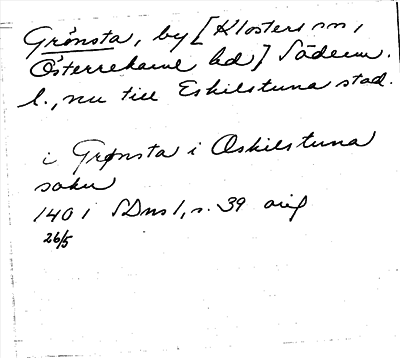 Grönsta, by [Klosters sn,
Österrekarne hd] Söderm.
l., nu till Eskilstuna stad.
i Grønsta i Oskilstuna
sokn
1401 SDns 1, s. 39 orig
26/5